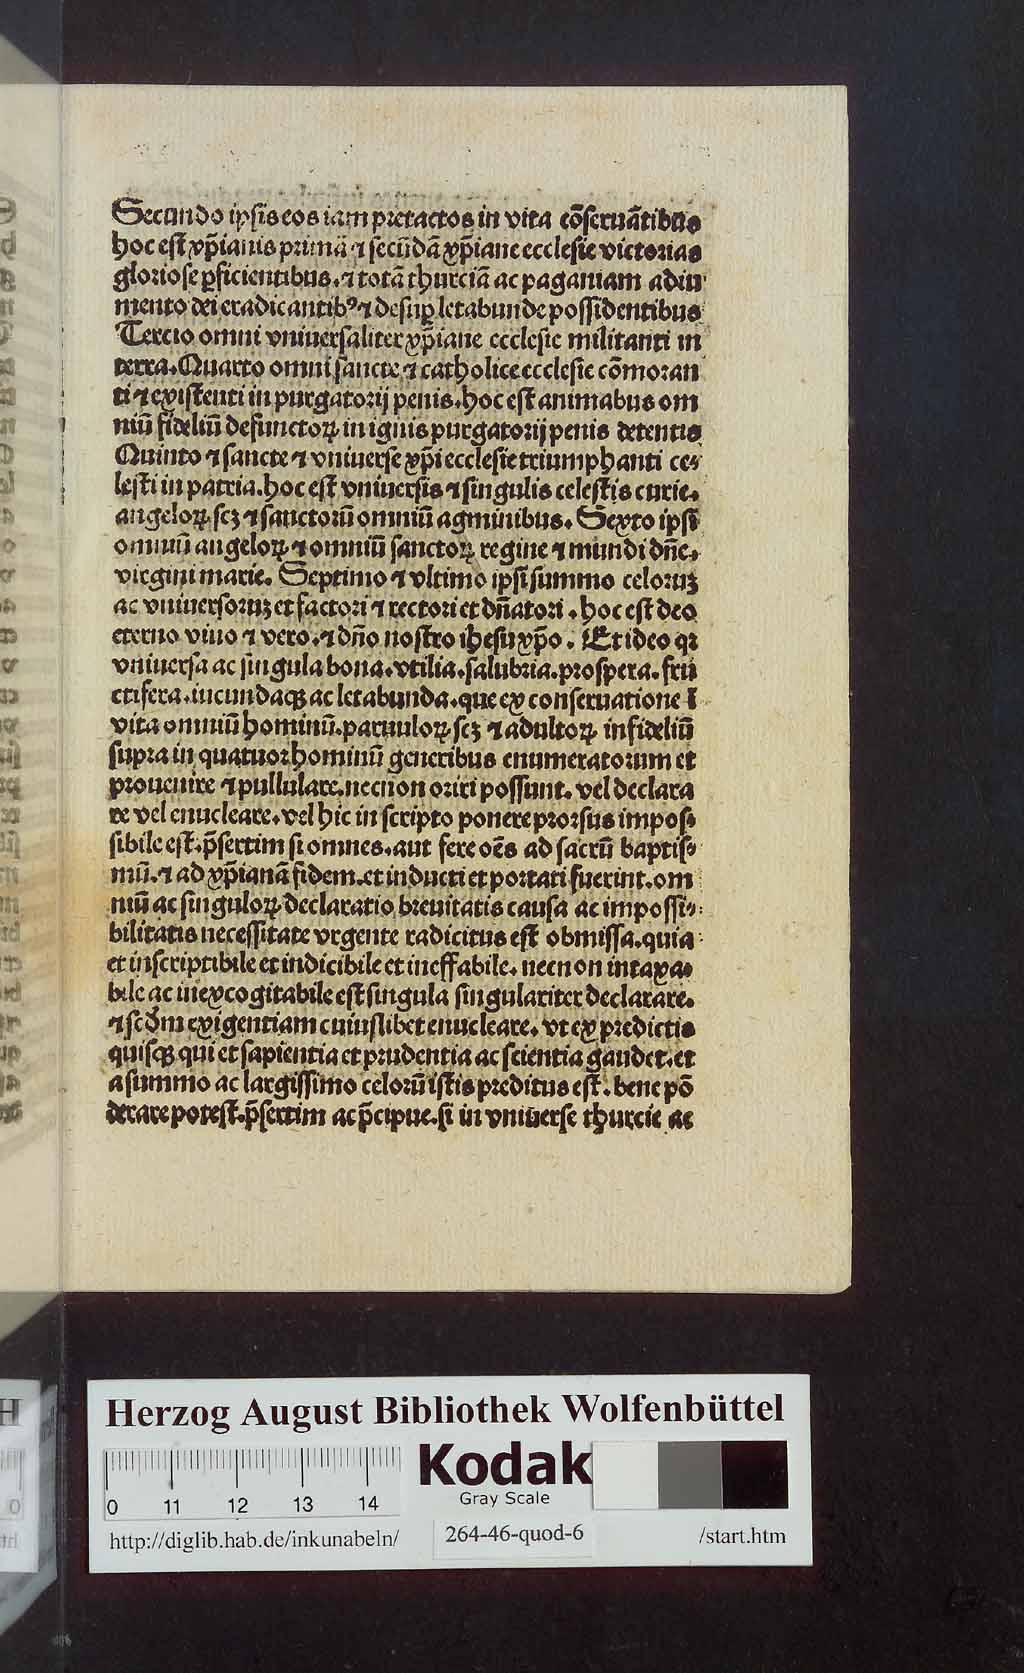 Secundo ipsis eos iam pretactos in vita cōseruātibus
hoc est xp̄ianis primā ⁊ secūdā xp̄iane ecclesie victorias
gloriose ꝑficientibus. ⁊ totā thurciā ac paganiam adiu
mento dei eradicantibꝰ ⁊ desuꝑ letabunde possidentibus
Tercio omni vniuersaliter xp̄iane ecclesie militanti in
terra. Quarto omni sancte ⁊ catholice ecclesie cōmoran
ti ⁊ existenti in purgatorij penis. hoc est animabus om
niū fideliū defunctoꝝ in ignis purgatorij penis detentis
Quinto ⁊ sancte ⁊ vniuerse xp̄i ecclesie triumphanti ce⸗
lesti in patria. hoc est vniuersis ⁊ singulis celestis curie.
angeloꝝ scꝫ ⁊ sanctorū omniū agminibus. Sexto ipsi
omniū angeloꝝ ⁊ omniū sanctoꝝ regine ⁊ mundi dn̄e.
virgini marie. Septimo ⁊ vltimo ipsi summo celoruꝫ
ac vniuersoruꝫ et factori ⁊ rectori et dn̄atori. hoc est deo
eterno viuo ⁊ vero. ⁊ dn̄o nostro ihesu xp̄o. Et ideo qꝛ
vniuersa ac singula bona. vtilia. salubria. prospera. fru
ctifera. iucundaqꝫ ac letabunda. que ex conseruatione ī
vita omniū hominū. paruuloꝝ scꝫ ⁊ adultoꝝ infideliū
supra in quatuor hominū generibus enumeratorum et
prouenire ⁊ pullulare. necnon oriri possunt. vel declara
re vel enucleare. vel hic in scripto ponere prorsus impos⸗
sibile est. p̄sertim si omnes. aut fere oēs ad sacrū baptis⸗
mū. ⁊ ad xp̄ianā fidem. et inducti et portati fuerint. om
niū ac singuloꝝ declaratio breuitatis causa ac impossi⸗
bilitatis necessitate vrgente radicitus est obmissa. quia
et inscriptibile et indicibile et ineffabile. necnon intaxa⸗
bile ac inexcogitabile est singula singulariter declarare.
⁊ scd̄m exigentiam cuiuslibet enucleare. vt ex predictis
quisqꝫ qui et sapientia et prudentia ac scientia gaudet. et
a summo ac largissimo celorū istis preditus est. bene pō
derare potest. p̄sertim ac p̄cipue. si in vniuerse thurcie ac
Herzog August Bibliothek Wolfenbüttel
Kodak
Gray Scale
0 11 12 13 14
http://diglib.hab.de/inkunabeln/ 264-46-quod-6 /start.htm